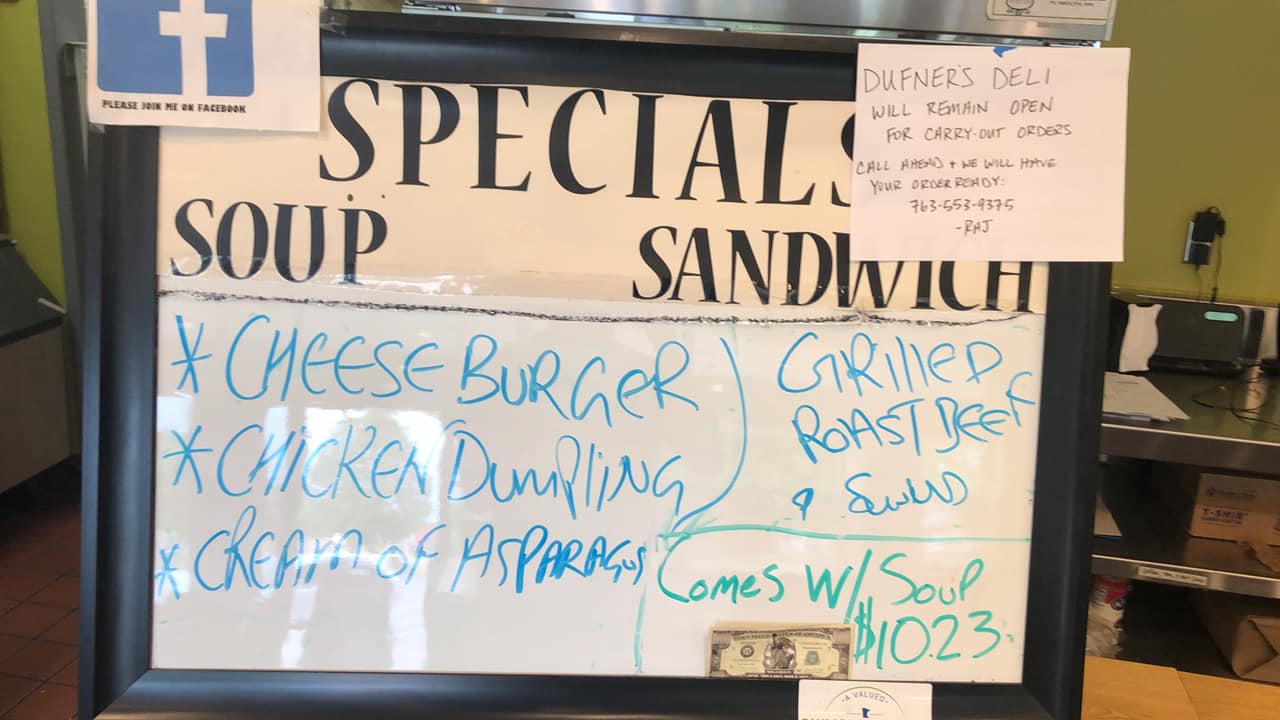 PLEASE JOIN ME ON FACEBOOK
SPECIALS
SOUP
SANDWICH
DUFNER'S DELI
WILL REMAIN OPEN
FOR CARRY-OUT ORDERS
CALL AHEAD + WE WILL HAVE
YOUR ORDER READY:
763-553-9375
-RAJ
* CHEESE BURGER
* CHICKEN DumplING
* CREAM OF ASPARAGUS
GRIllED
ROAST BEEF
& SWISS
Comes W/ Soup
$10.23
A VALUED
T-SHIR